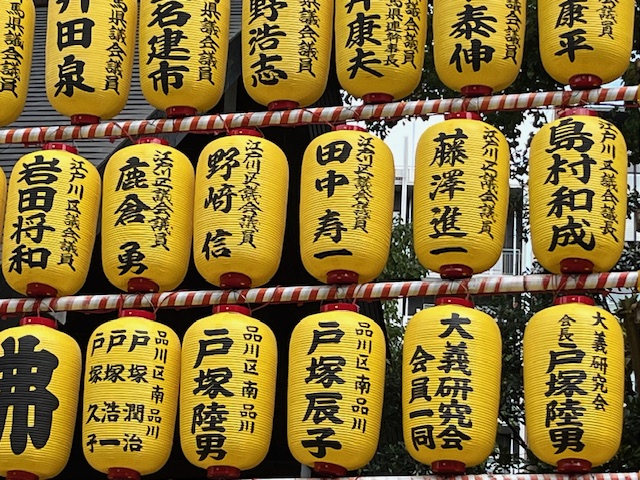 県議会議員
井田泉
県議会議員
名建市
県議会議員
野浩志
県議会議員
井康夫
県議会議員
泰伸
県議会議員
康平
江戸川区議会議員
岩田将和
江戸川区議会議員
鹿倉勇
江戸川区議会議員
野﨑信
江戸川区議会議員
田中寿一
江戸川区議会議員
藤澤進一
江戸川区議会議長
島村和成
佛
品川区南品川
戸塚潤治
戸塚浩一
戸塚久子
品川区南品川
戸塚陸男
品川区南品川
戸塚辰子
大義研究会
会員一同
大義研究会
会長
戸塚陸男